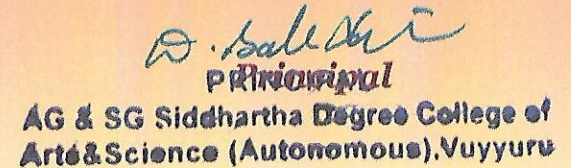 Principal
PRINCIPAL
AG & SG Siddhartha Degree College of
Arts&Science (Autonomous).Vuyyuru